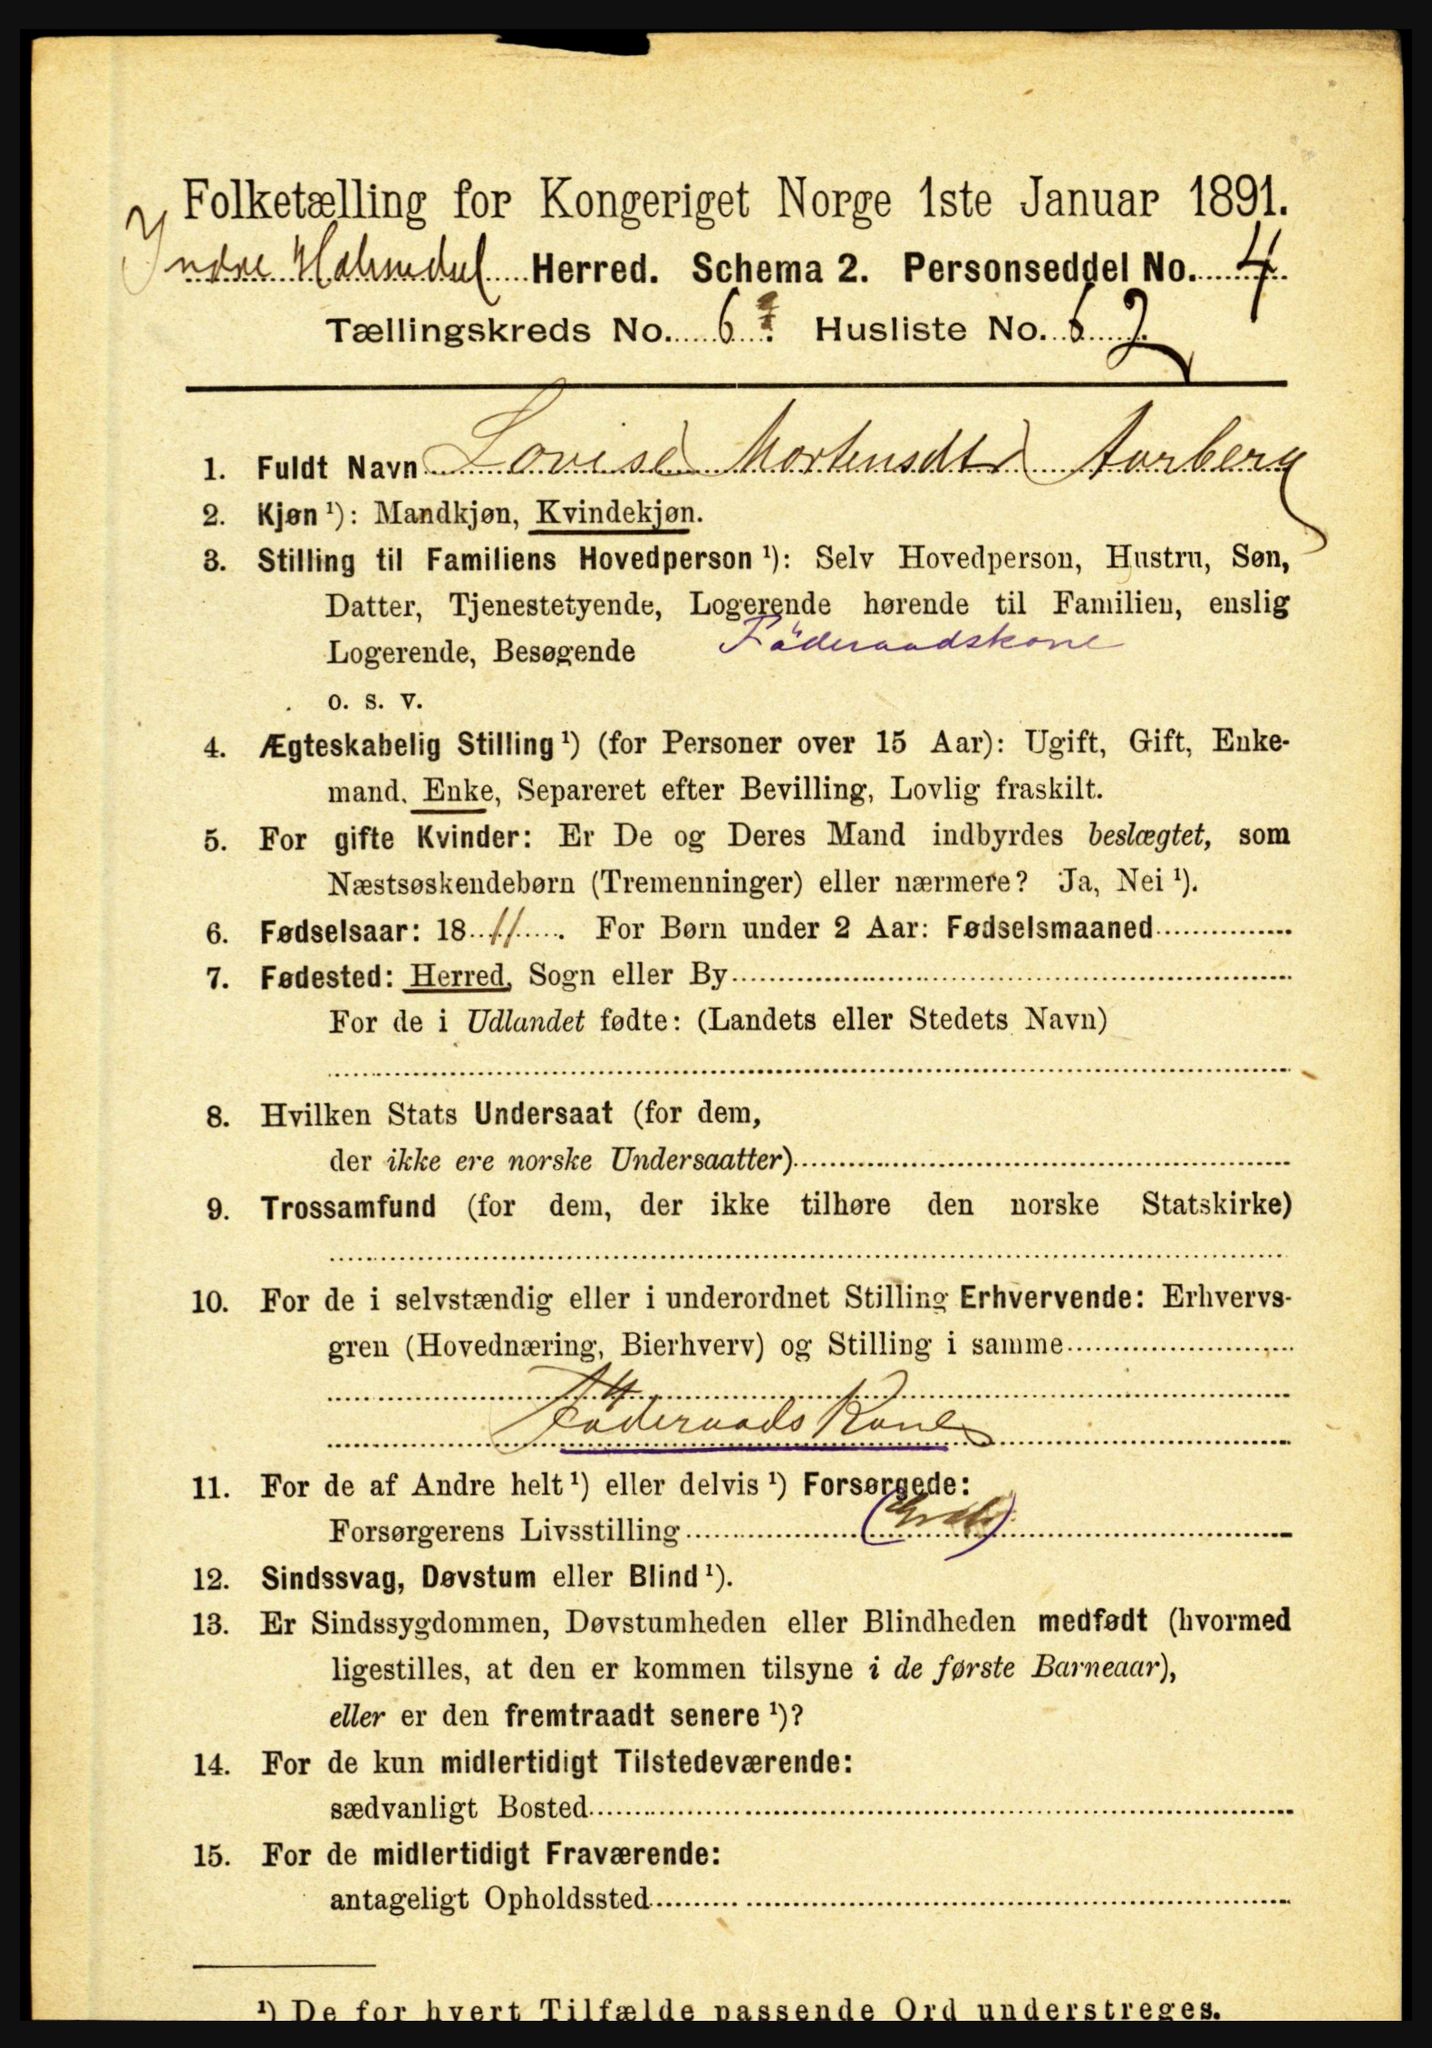 Folketælling for Kongeriget Norge 1ste Januar 1891.
Indre Holmedal Herred. Schema 2. Personseddel No. 4
Tællingskreds No. 6 Husliste No. 62
1. Fuldt Navn Lovise Mortensdtr Aarberg
2. Kjøn ¹): Mandkjøn, Kvindekjøn.
3. Stilling til Familiens Hovedperson ¹): Selv Hovedperson, Hustru, Søn,
Datter, Tjenestetyende, Logerende hørende til Familien, enslig
Logerende, Besøgende Föderaadskone
o. s. v.
4. Ægteskabelig Stilling ¹) (for Personer over 15 Aar): Ugift, Gift, Enke-
mand, Enke, Separeret efter Bevilling, Lovlig fraskilt.
5. For gifte Kvinder: Er De og Deres Mand indbyrdes beslægtet, som
Næstsøskendebørn (Tremenninger) eller nærmere? Ja, Nei ¹).
6. Fødselsaar: 1811. For Børn under 2 Aar: Fødselsmaaned
7. Fødested: Herred, Sogn eller By
For de i Udlandet fødte: (Landets eller Stedets Navn)
8. Hvilken Stats Undersaat (for dem,
der ikke ere norske Undersaatter)
9. Trossamfund (for dem, der ikke tilhøre den norske Statskirke)
10. For de i selvstændig eller i underordnet Stilling Erhvervende: Erhvervs-
gren (Hovednæring, Bierhverv) og Stilling i samme
Föderaads Kone
11. For de af Andre helt ¹) eller delvis ¹) Forsørgede:
Forsørgerens Livsstilling
12. Sindssvag, Døvstum eller Blind ¹).
13. Er Sindssygdommen, Døvstumheden eller Blindheden medfødt (hvormed
ligestilles, at den er kommen tilsyne i de første Barneaar),
eller er den fremtraadt senere ¹)?
14. For de kun midlertidigt Tilstedeværende:
sædvanligt Bosted
15. For de midlertidigt Fraværende:
antageligt Opholdssted
¹) De for hvert Tilfælde passende Ord understreges.